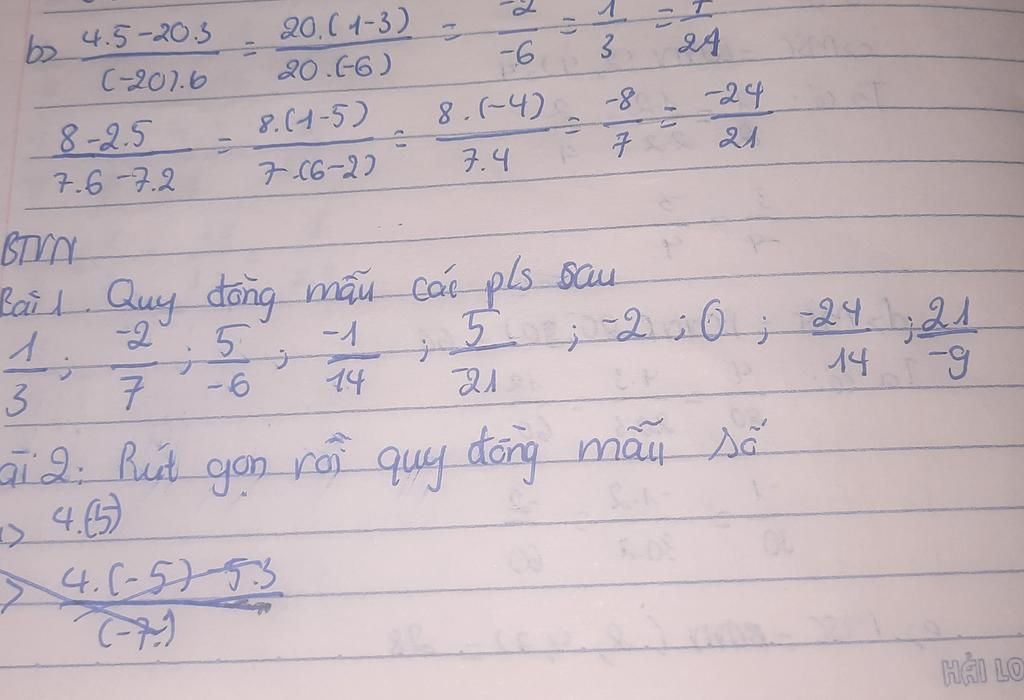 b) 4.5-20.3/(-20).6 = 20.(1-3)/20.(-6) = -2/-6 = 1/3 = 7/21
8-2.5/7.6-7.2 = 8.(1-5)/7.(6-2) = 8.(-4)/7.4 = -8/7 = -24/21
BTVN
Bài 1. Quy đồng mẫu các pls sau
1/3; -2/7; 5/-6; -1/14; 5/-21; -2; 0; -24/14; 21/-9
ài 2: Rút gọn rồi quy đồng mẫu số
> 4.(-5)
> 4.(-5)-5.3/(-7.)
HẢI LO